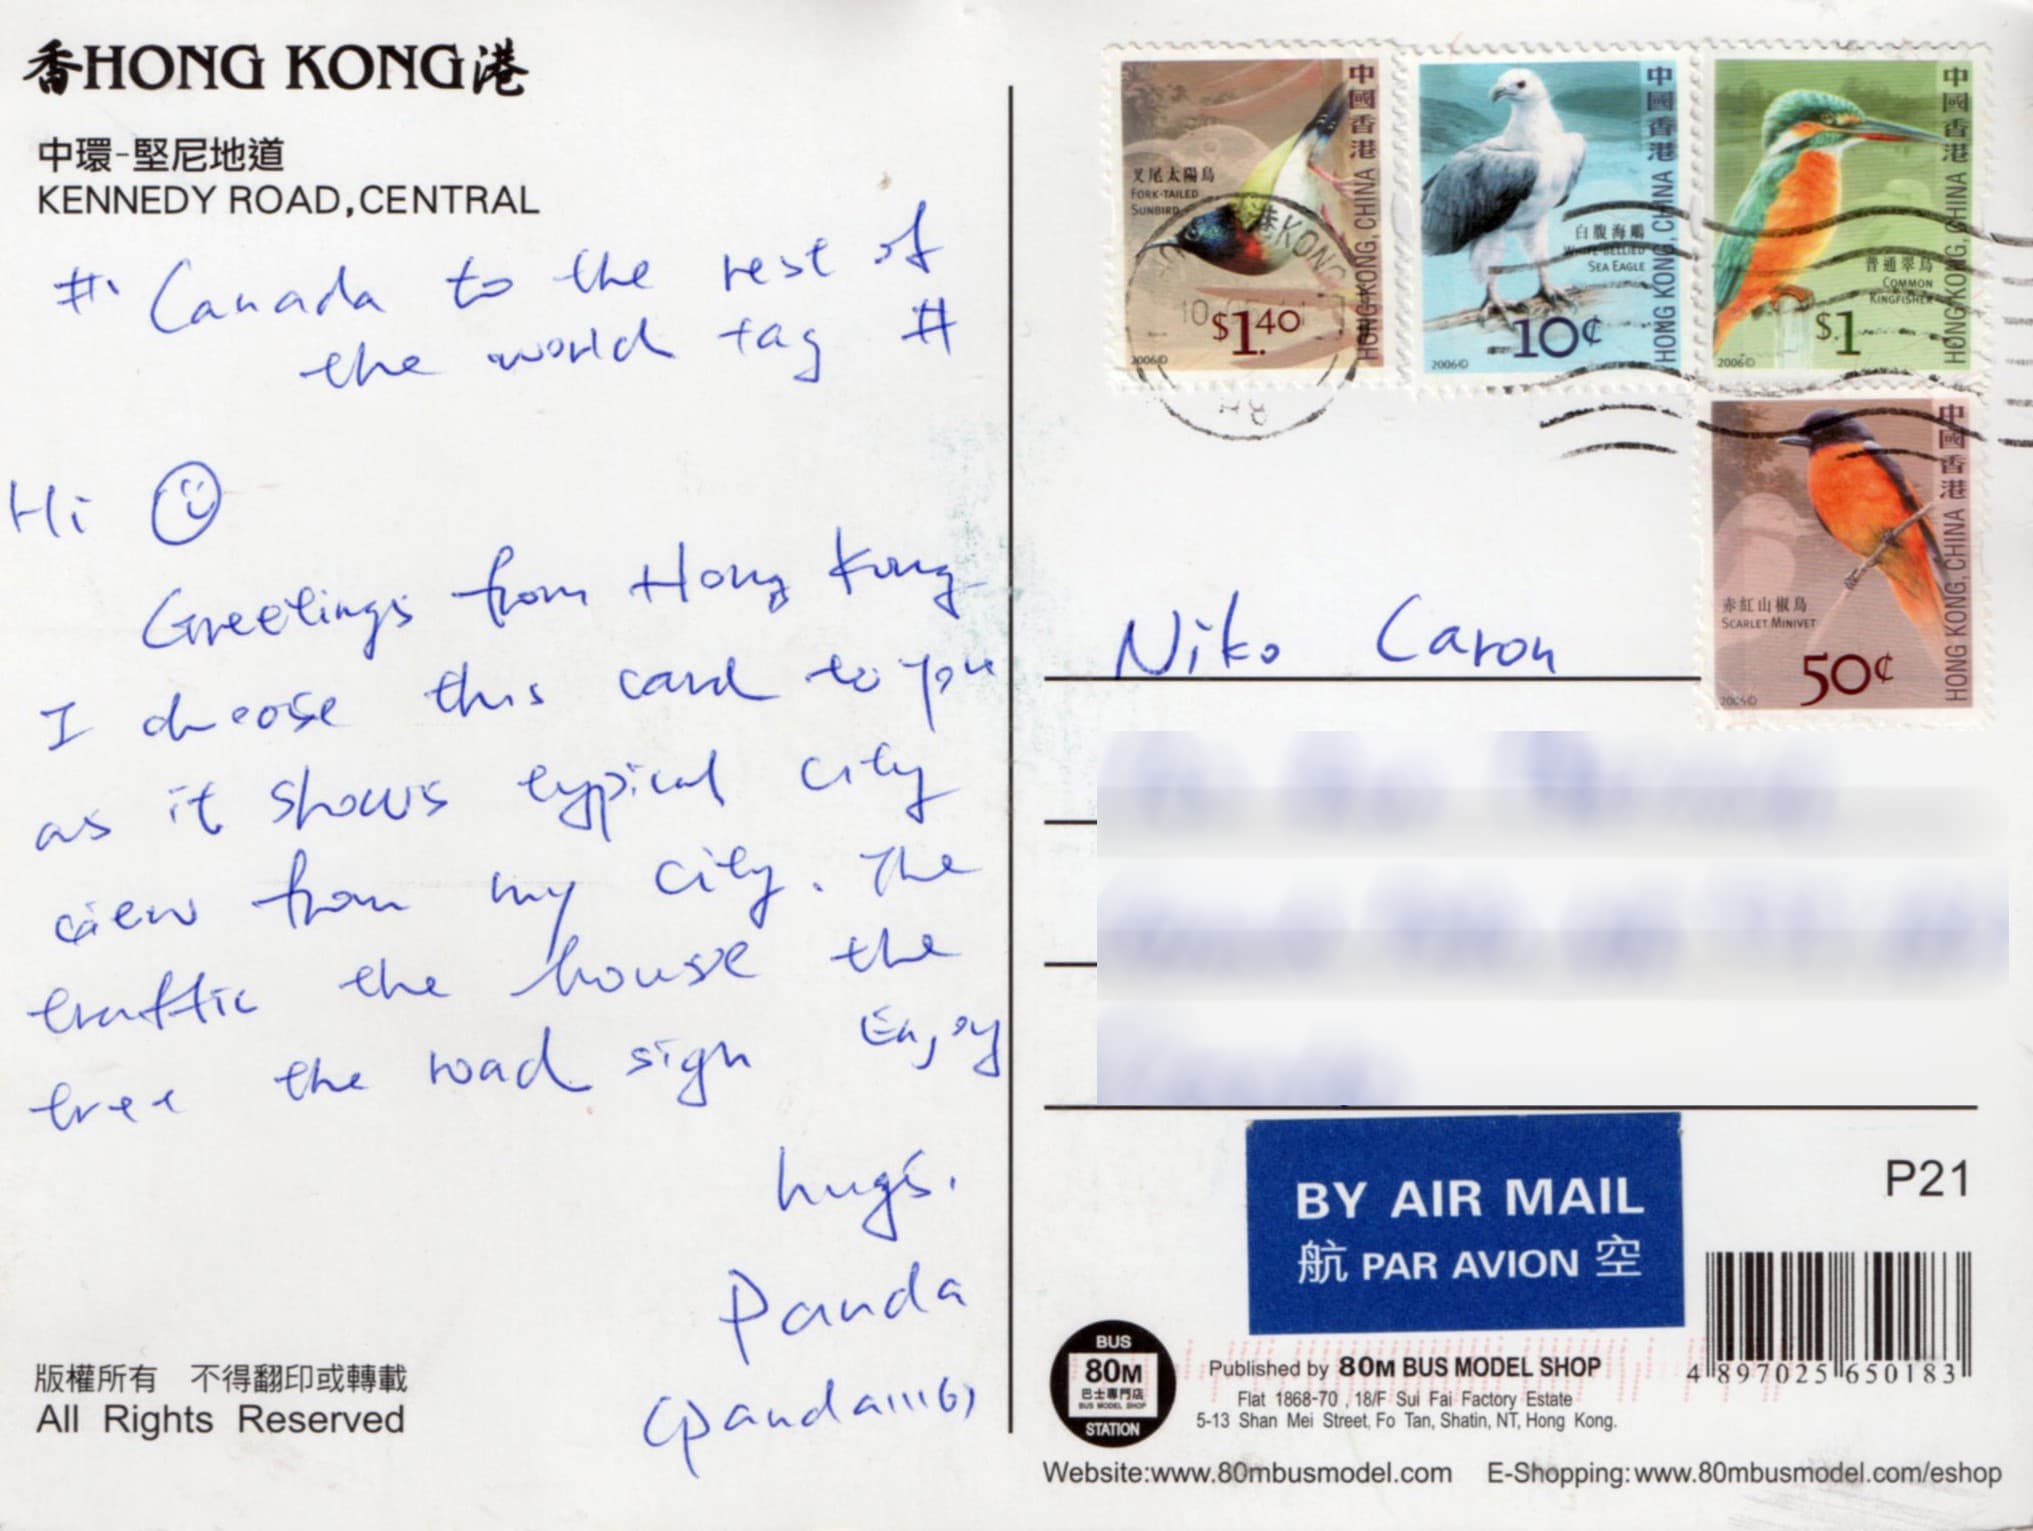 香HONG KONG港
中環-堅尼地道
KENNEDY ROAD,CENTRAL
# Canada to the rest of
the world tag #
Hi
Greetings from Hong Kong
I choose this card to you
as it shows typical city
view from my city. The
traffic the house the
tree the road sign Enjoy
hugs.
Panda
(panda1116)
版權所有 不得翻印或轉載
All Rights Reserved
中國香港
HONG KONG, CHINA
叉尾太陽鳥
FORK-TAILED
SUNBIRD
$1.40
2006©
中國香港
HONG KONG, CHINA
白腹海鵰
WHITE-BELLIED
SEA EAGLE
10¢
2006©
中國香港
HONG KONG, CHINA
普通翠鳥
COMMON
KINGFISHER
$1
2006©
中國香港
HONG KONG, CHINA
赤紅山椒鳥
SCARLET MINIVET
50¢
2006©
港KONG
Niko Caron
BY AIR MAIL
航 PAR AVION 空
P21
4 897025 650183
BUS
80M
巴士專門店
BUS MODEL SHOP
STATION
Published by 80M BUS MODEL SHOP
Flat 1868-70 , 18/F Sui Fai Factory Estate
5-13 Shan Mei Street, Fo Tan, Shatin, NT, Hong Kong.
Website:www.80mbusmodel.com E-Shopping:www.80mbusmodel.com/eshop